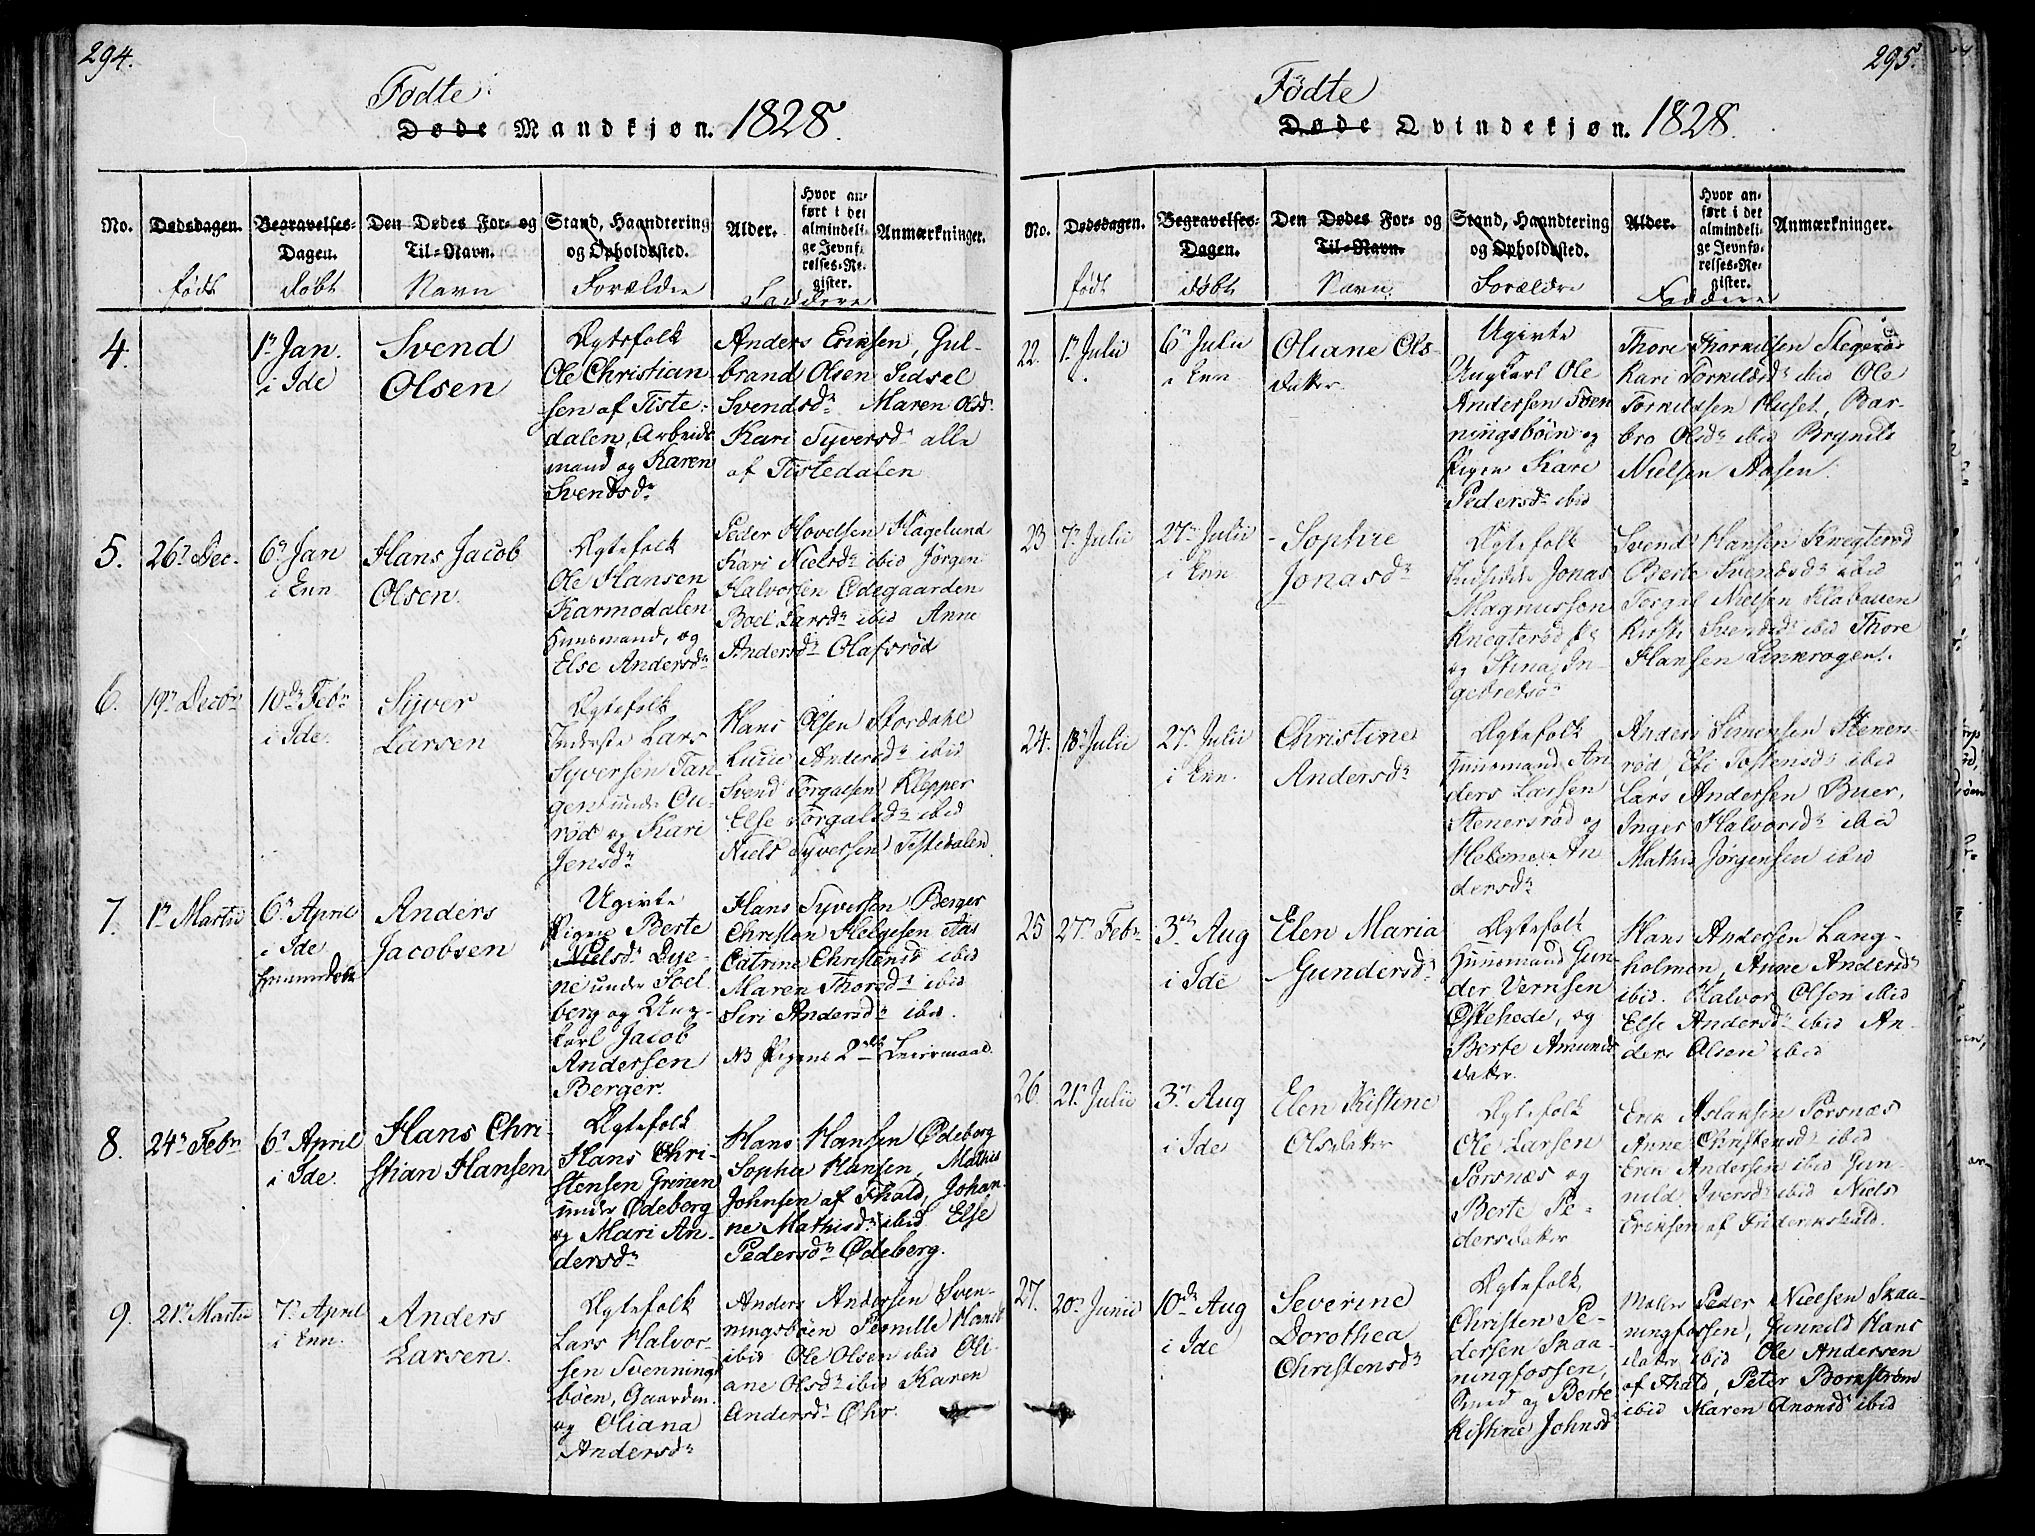 294.
Fødte
Døde Mandkjøn. 1828.
No.
Dødsdagen.
født
Begravelses-
Dagen.
døbt
Den Dødes For- og
Til-Navn.
Navn
Stand, Haandtering
og Opholdssted.
Forældre
Alder.
Hvor an-
ført i det
almindeli-
ge Jevnfø-
relses-Re-
gister.
Anmærkninger.
Faddere
4.
1n Jan.
i Ide
Svend
Olsen
Ægtefolk
Ole Christian
sen af Tiste-
dalen, Arbeids
mand og Karen
Svendsdr
Anders Eriksen, Gul-
brand Olsen Sidsel
Svendsdr Maren Olsdr
Kari Syversdr alle
af Tistedalen
5.
26n Dec.
6n Jan
i Enn
Hans Jacob
Olsen.
Ægtefolk
Ole Hansen
Karmodalen
Huusmand, og
Else Andersdr
Peder Hovelsen Hagelund
Kari Nielsdr ibid Jørgen
Halvorsen Ødegaarden
Boel Larsdr ibid Anne
Andersdr Olafsrød
6.
19n Decbr
10de Febr
i Ide.
Syver
Larsen
Ægtefolk
Inderste Lars
Syversen Tan-
gen under Ou-
rød og Kari
Jensdr
Hans Olsen Stordahl
Lucie Andersdr ibid
Svend Torgalsen Klepper
Else Torgalsdr ibid
Niels Syversen Tistedalen
7.
1n Martii
6n April
i Ide
hjemmedøbt
Anders
Jacobsen
Ugivte
Pigen Berte
Nielsdr Dye-
ne under Soel
berg og Ung-
karl Jacob
Andersen
Berger.
Hans Syversen Berger
Christen Helgesen Aas
Catrine Christensd ibid
Maren Thorsdr ibid
Siri Andersdr ibid.
NB Pigens 2det Leiermaal.
8.
24n Febr
6n April
i Ide.
Hans Chri-
stian Hansen
Ægtefolk
Hans Chri-
stensen Grinen
under Ødeberg
og Mari An-
dersdr
Hans Hansen Ødeberg
Sophie Hansen, Mathis
Johnsen af Fhald, Johan-
ne Mathisdr ibid Else
Pedersdr Ødeberg.
9.
21n Martii
7n April
i Enn.
Anders
Larsen.
Ægtefolk
Lars Halvor-
sen Svennings
bøen, Gaardm.
og Oliana
Andersdr
Anders Andersen Sven-
ningsbøen Pernille Hansd
ibid Ole Olsen ibid Oli-
ane Olsdr ibid Karen
Andersdr Øhr.
295.
Fødte
Døde Qvindekjøn. 1828.
No.
Dødsdagen.
født
Begravelses-
Dagen.
døbt
Den Dødes For- og
Til-Navn.
Navn
Stand, Haandtering
og Opholdssted.
Forældre
Alder.
Hvor an-
ført i det
almindeli-
ge Jevnfø-
relses-Re-
gister.
Anmærkninger.
Faddere
22.
1n Julii
6n Julii
i Enn
Oliane Ols-
datter
Ugivte
Ungkarl Ole
Andersen Sven
ningsbøen og
Pigen Kari
Pedersdr ibid
Thore Thorkilsen
Kari Torkildsdr ibid Ole
Torkildsen Huset, Bar-
bro Olsdr ibid
Nielsen Aasen.
23
7n Julii
27n Julii
i Enn
Sophie
Jonasdr
Ægtefolk
Jonas
Magnussen
Knegterød
og Stina In-
Svend Hansen Knegterød
Berte Svendsdr ibid
Torgal Nielsen
Kirsti Svendsd ibid Thore
Hansen
24.
18n Julii
27n Julii
i Enn.
Christine
Andersdr
Ægtefolk
Huusmand An
ders Larsen
Stenersrød og
Helene An
dersdr
Anders Simensen Steners-
rød, Tostensdr ibid
Lars Andersen Buer,
Inger Halvorsdr ibid
Mathis Jørgensen ibid
25
27n Febr.
3de Aug
i Ide
Elen Maria
Gundersdr
Ægtefolk
Huusmand Gun-
der Vernsen
Østehede, og
Berte Amunds
datter.
Hans Andersen Lang-
holmen, Anne Andersdr
ibid. Halvor Olsen ibid
Else Andersdr ibid An-
ders Olsen ibid
26.
21n Julii
3de Aug
i Ide
Elen Kistine
Olsdatter
Ægtefolk
Ole Larsen
Sorsnæs og
Berte Pe-
dersdatter
Erik Aslaksen Sorsnæs
Anne Christensdr ibid
Erik Andersen ibid Gun-
nild Iversdr ibid Niels
Eriksen af Friderikshald.
27.
20n Junii
10de Aug
i Ide
Severine
Dorothea
Christensdr
Ægtefolk,
Christen Pe-
dersen Skaa-
ningfossen,
Smed og Berte
Kistine Johnsdr
Møller Peder Nielsen Skaa-
ningfossen, Gunnild Hans
datter ibid Ole Andersen
af Fhald, Peter Bornstrøm
ibid Maren Anonsd ibid